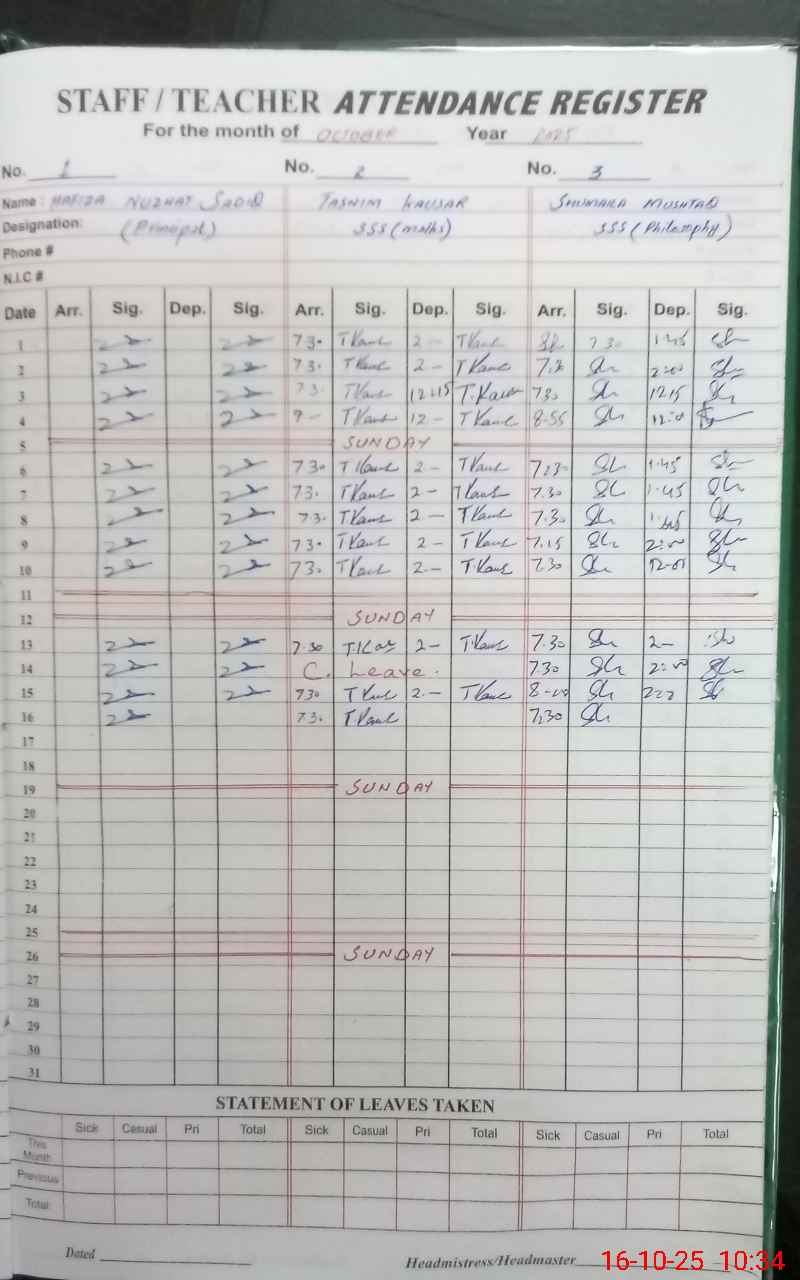 STAFF / TEACHER ATTENDANCE REGISTER
For the month of OCTOBER Year 2025
No. 1 No. 2 No. 3
Name : HAFIZA NUZHAT SADIQ TASNIM KAUSAR SHUMAILA MUSHTAQ
Designation: (Principal) SSS (maths) SSS (Philosphy)
Phone #
N.I.C #
Date Arr. Sig. Dep. Sig. Arr. Sig. Dep. Sig. Arr. Sig. Dep. Sig.
1 7 3. T Kaus 2 - T Kaus 7 30 1.45
2 7 3. T Kaus 2 - T Kaus 2.00
3 7 3. T Kaus 12.15 T. Kaus 7 30 12.15
4 T Kaus 12 - T Kaus 8.55
5 SUNDAY
6 7 30 T Kaus 2 - T Kaus 7.30 1.45
7 7 3. T Kaus 2 - T Kaus 7.30 1.45
8 7 3. T Kaus 2 - T Kaus 7.30 1.45
9 7 3. T Kaus 2 - T Kaus 7.15 2.00
10 7 3. T Kaus 2 - T. Kaus 7.30
11
12 SUNDAY
13 7.30 T. Kaus 2 - T. Kaus 7.30 2 -
14 C. Leave. 7.30 2.00
15 7 30 T Kaus 2. - T Kaus 8-00
16 7 3. T Kaus 7.30
17
18
19 SUNDAY
20
21
22
23
24
25
26 SUNDAY
27
28
29
30
31
STATEMENT OF LEAVES TAKEN
Sick Casual Pri Total Sick Casual Pri Total Sick Casual Pri Total
This Month
Previous
Total
Dated
Headmistress/Headmaster
16-10-25 10:34